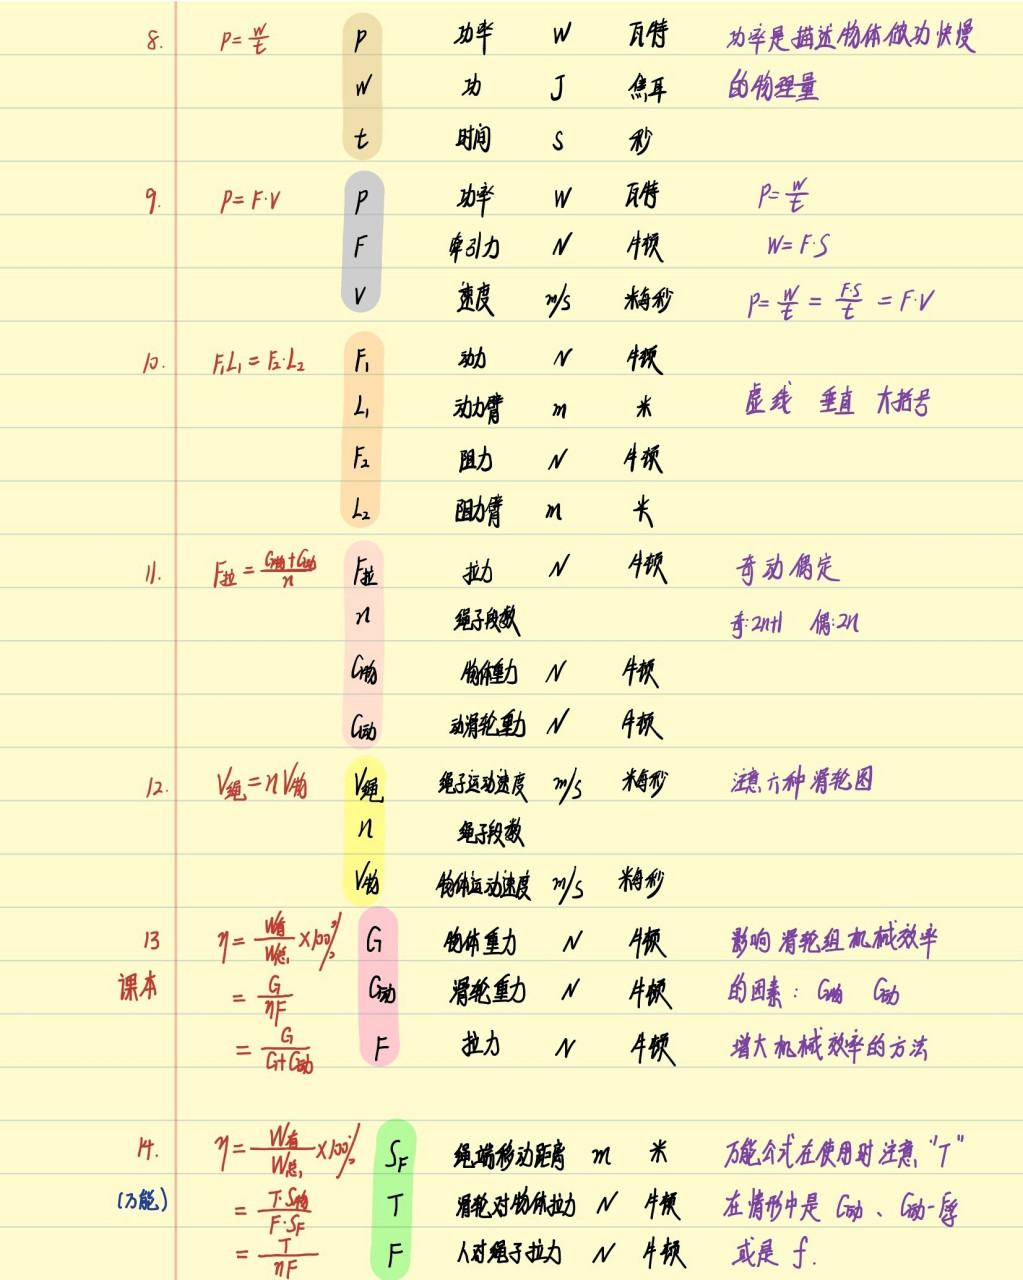 8. P=W/t P 功率 W 瓦特 功率是描述物体做功快慢
W 功 J 焦耳 的物理量
t 时间 s 秒
9. P=F·V P 功率 W 瓦特 P=W/t
F 牵引力 N 牛顿 W=F·S
V 速度 m/s 米每秒 P=W/t=F·S/t=F·V
10. F₁L₁=F₂·L₂ F₁ 动力 N 牛顿
L₁ 动力臂 m 米 虚线 垂直 大括号
F₂ 阻力 N 牛顿
L₂ 阻力臂 m 米
11. F拉=(G物+G动)/n F拉 拉力 N 牛顿 奇动偶定
n 绳子段数 奇:2n+1 偶:2n
G物 物体重力 N 牛顿
G动 动滑轮重力 N 牛顿
12. V绳=nV物 V绳 绳子运动速度 m/s 米每秒 注意六种滑轮图
n 绳子段数
V物 物体运动速度 m/s 米每秒
13 η=W有/W总×100% G 物体重力 N 牛顿 影响滑轮组机械效率
课本 =G/nF G动 滑轮重力 N 牛顿 的因素: G物 G动
=G/(G+G动) F 拉力 N 牛顿 增大机械效率的方法
14. η=W有/W总×100% S_F 绳端移动距离 m 米 万能公式在使用时注意"T"
(万能) =T·S物/F·S_F T 滑轮对物体拉力 N 牛顿 在情形中是 G动、G动-F浮
=T/nF F 人对绳子拉力 N 牛顿 或是 f.